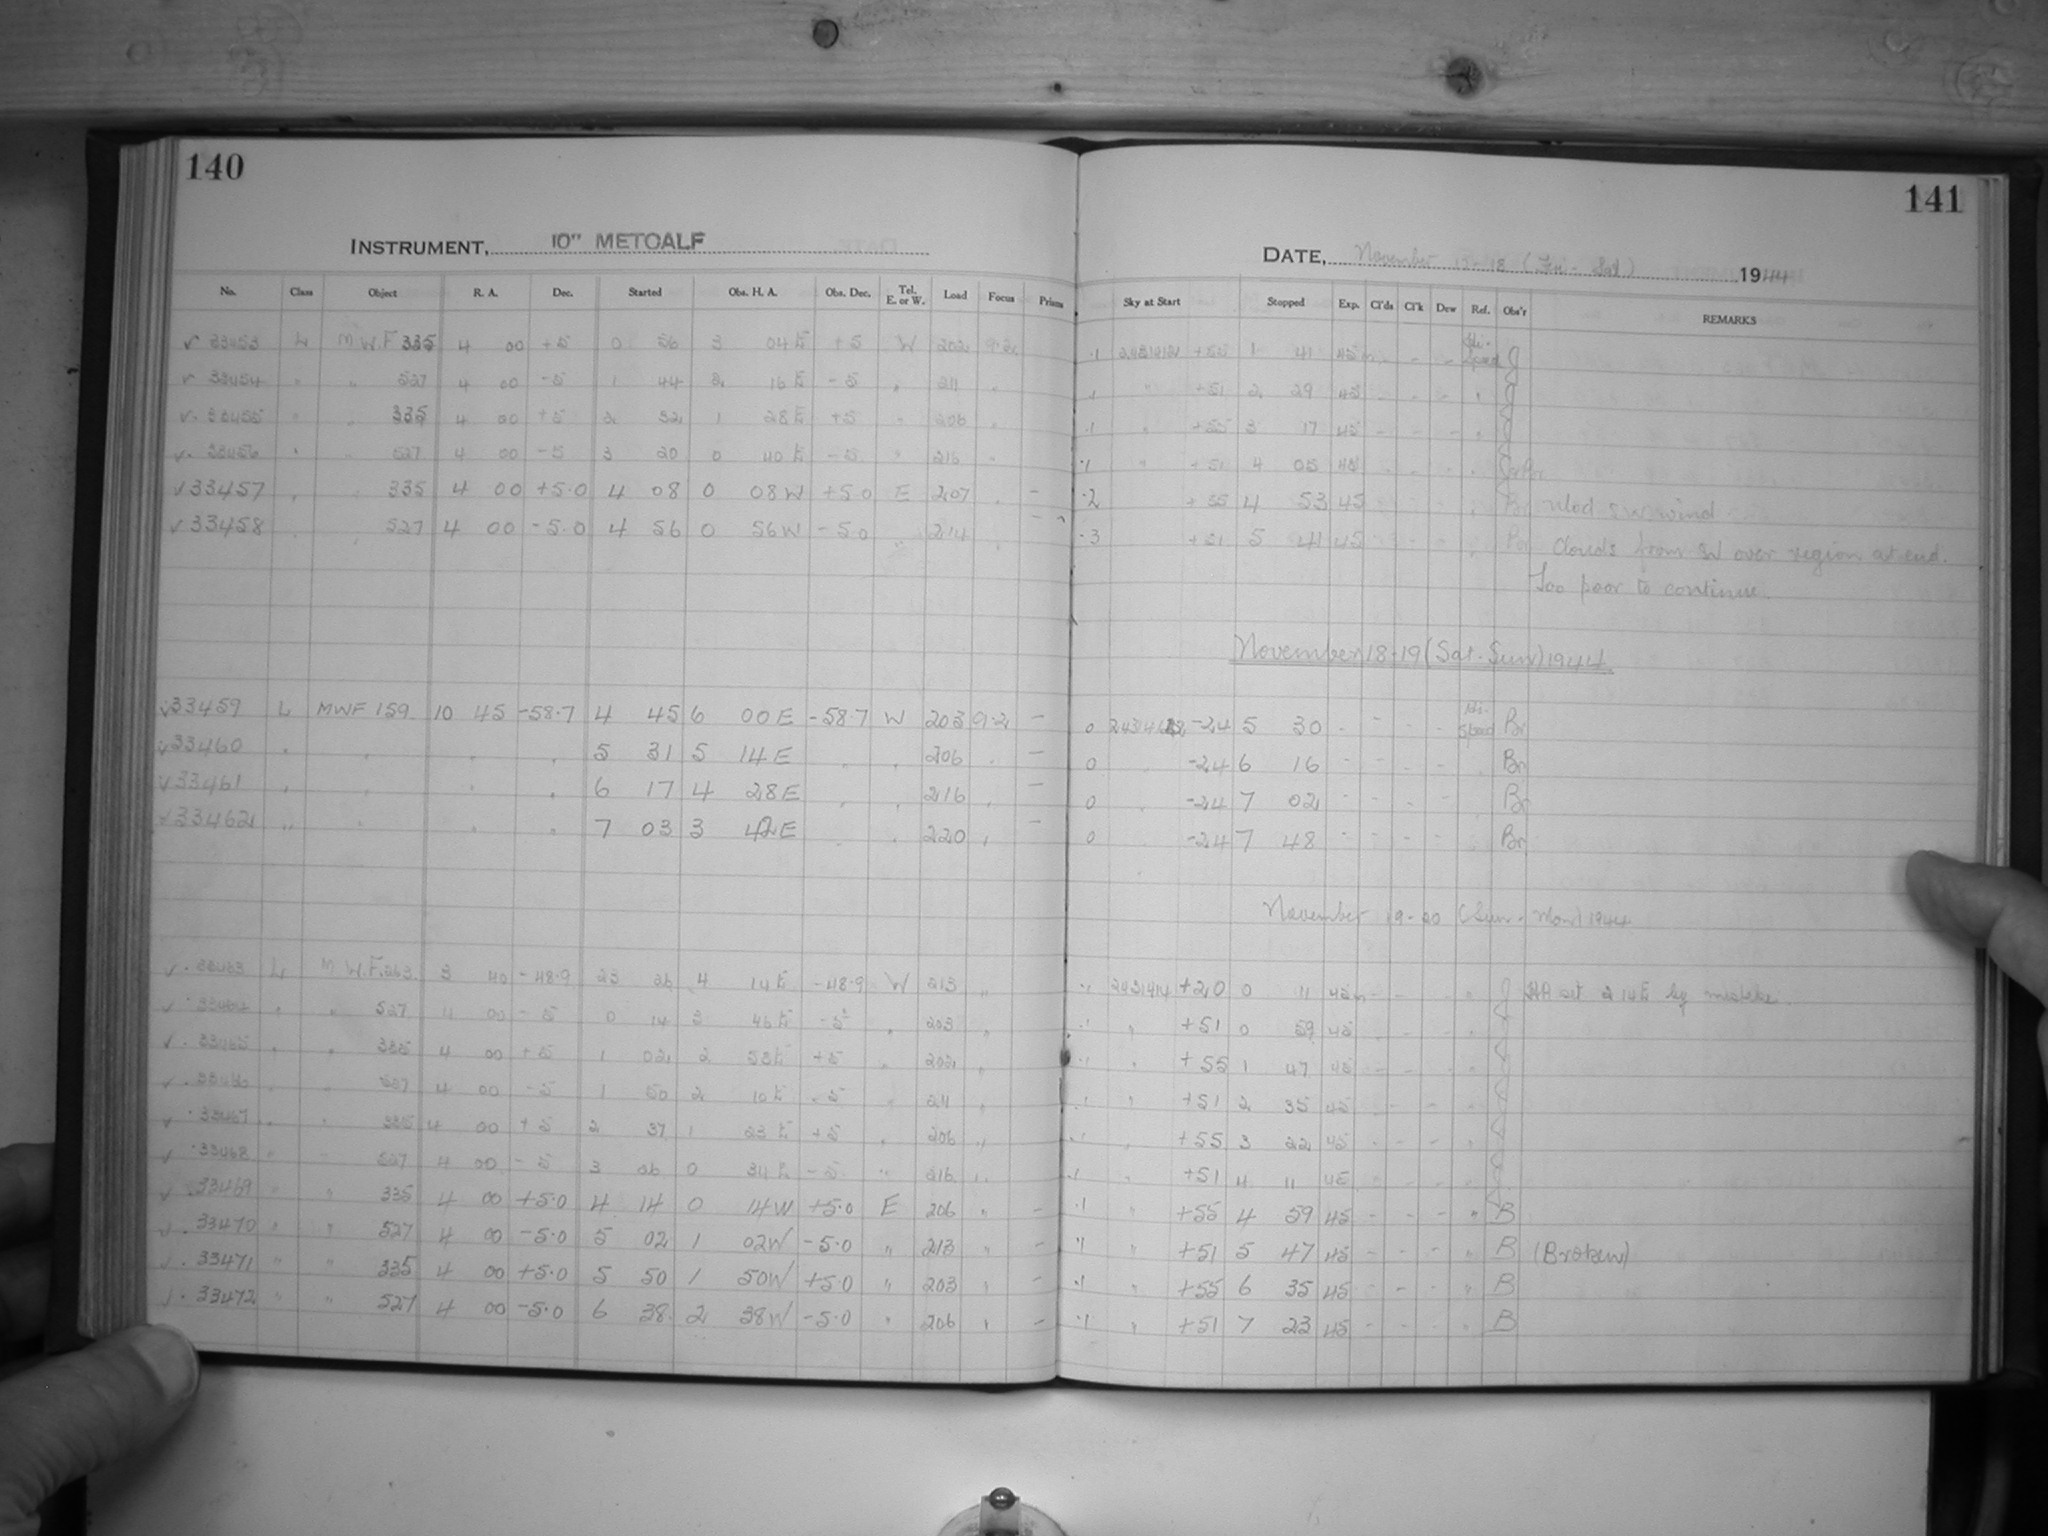 140
INSTRUMENT, 10" METCALF
No. Class Object R. A. Dec. Started Obs. H. A. Obs. Dec. Tel. E. or W. Load Focus Prism
✓ 33453 L M.W.F 335 4 00 +5 0 56 3 04 E +5 W 202 9.2
✓ 33454 " " 527 4 00 -5 1 44 2 16 E -5 " 211 "
✓ 33455 " " 335 4 00 +5 2 32 1 28 E +5 " 206 "
✓ 33456 " " 527 4 00 -5 3 20 0 40 E -5 " 216 "
✓ 33457 " " 335 4 00 +5.0 4 08 0 08 W +5.0 E 207 " -
✓ 33458 " " 527 4 00 -5.0 4 56 0 56 W -5.0 " 214 " -
✓ 33459 L MWF 159 10 45 -58.7 4 45 6 00 E -58.7 W 203 9.2 -
✓ 33460 " " " " 5 31 5 14 E " " 206 " -
✓ 33461 " " " " 6 17 4 28 E " " 216 " -
✓ 33462 " " " " 7 03 3 42 E " " 220 " -
✓ 33463 L M.W.F. 263 3 40 -48.9 23 26 4 14 E -48.9 W 213 "
✓ 33464 " " 527 4 00 -5 0 14 3 46 E -5 " 203 "
✓ 33465 " " 335 4 00 +5 1 02 2 58 E +5 " 202 "
✓ 33466 " " 527 4 00 -5 1 50 2 10 E -5 " 211 "
✓ 33467 " " 335 4 00 +5 2 37 1 23 E +5 " 206 "
✓ 33468 " " 527 4 00 -5 3 26 0 34 E -5 " 216 "
✓ 33469 " " 335 4 00 +5.0 4 14 0 14 W +5.0 E 206 " -
✓ 33470 " " 527 4 00 -5.0 5 02 1 02 W -5.0 " 213 " -
✓ 33471 " " 335 4 00 +5.0 5 50 1 50 W +5.0 " 203 " -
✓ 33472 " " 527 4 00 -5.0 6 38 2 38 W -5.0 " 206 " -
141
DATE, November 17-18 (Fri - Sat) 1944
Sky at Start Stopped Exp. Cl'ds Cl'k Dew Ref. Obs'r REMARKS
.1 +55 1 41 45m - - - Hi-Speed J
.1 " +51 2 29 45 - - - " J
.1 " +55 3 17 45 - - - " J
.1 " +51 4 05 45 - - - "
.2 +55 4 53 45 - - - " Br Mod SW wind
.3 +51 5 41 45 - - - " Br Clouds from SW over region at end.
Too poor to continue.
November 18-19 (Sat-Sun) 1944
0 -24 5 30 - - - - Hi-Speed Br
0 -24 6 16 - - - - Br
0 -24 7 02 - - - - Br
0 -24 7 48 - - - - Br
November 19-20 (Sun - Mon) 1944
.1 2431414 +20 0 11 45m - - - " J HA set 2 14 E by mistake.
.1 " +51 0 59 45 - - - " J
.1 " +55 1 47 45 - - - " J
.1 " +51 2 35 45 - - - " J
.1 " +55 3 22 45 - - - " J
.1 " +51 4 11 45 - - - " J
.1 " +55 4 59 45 - - - " B
" " +51 5 47 45 - - - " B (Broken)
.1 " +55 6 35 45 - - - " B
.1 " +51 7 23 45 - - - " B